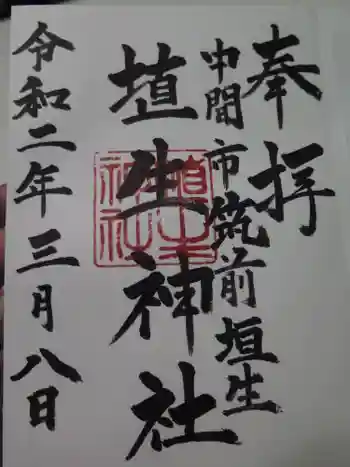 奉拝
中間市筑前垣生
埴生神社
令和二年三月八日